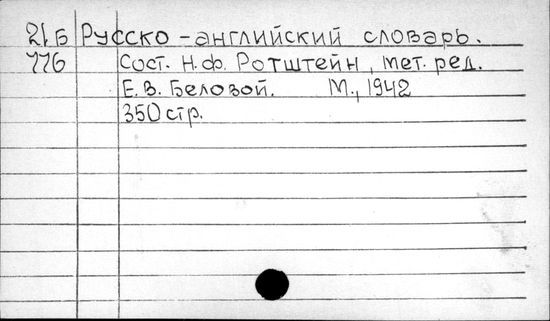 21Б Русско-английский словарь.
776 Сост. Н.Ф. Ротштейн, мет. ред.
Е.В. Беловой. М., 1942
350 стр.